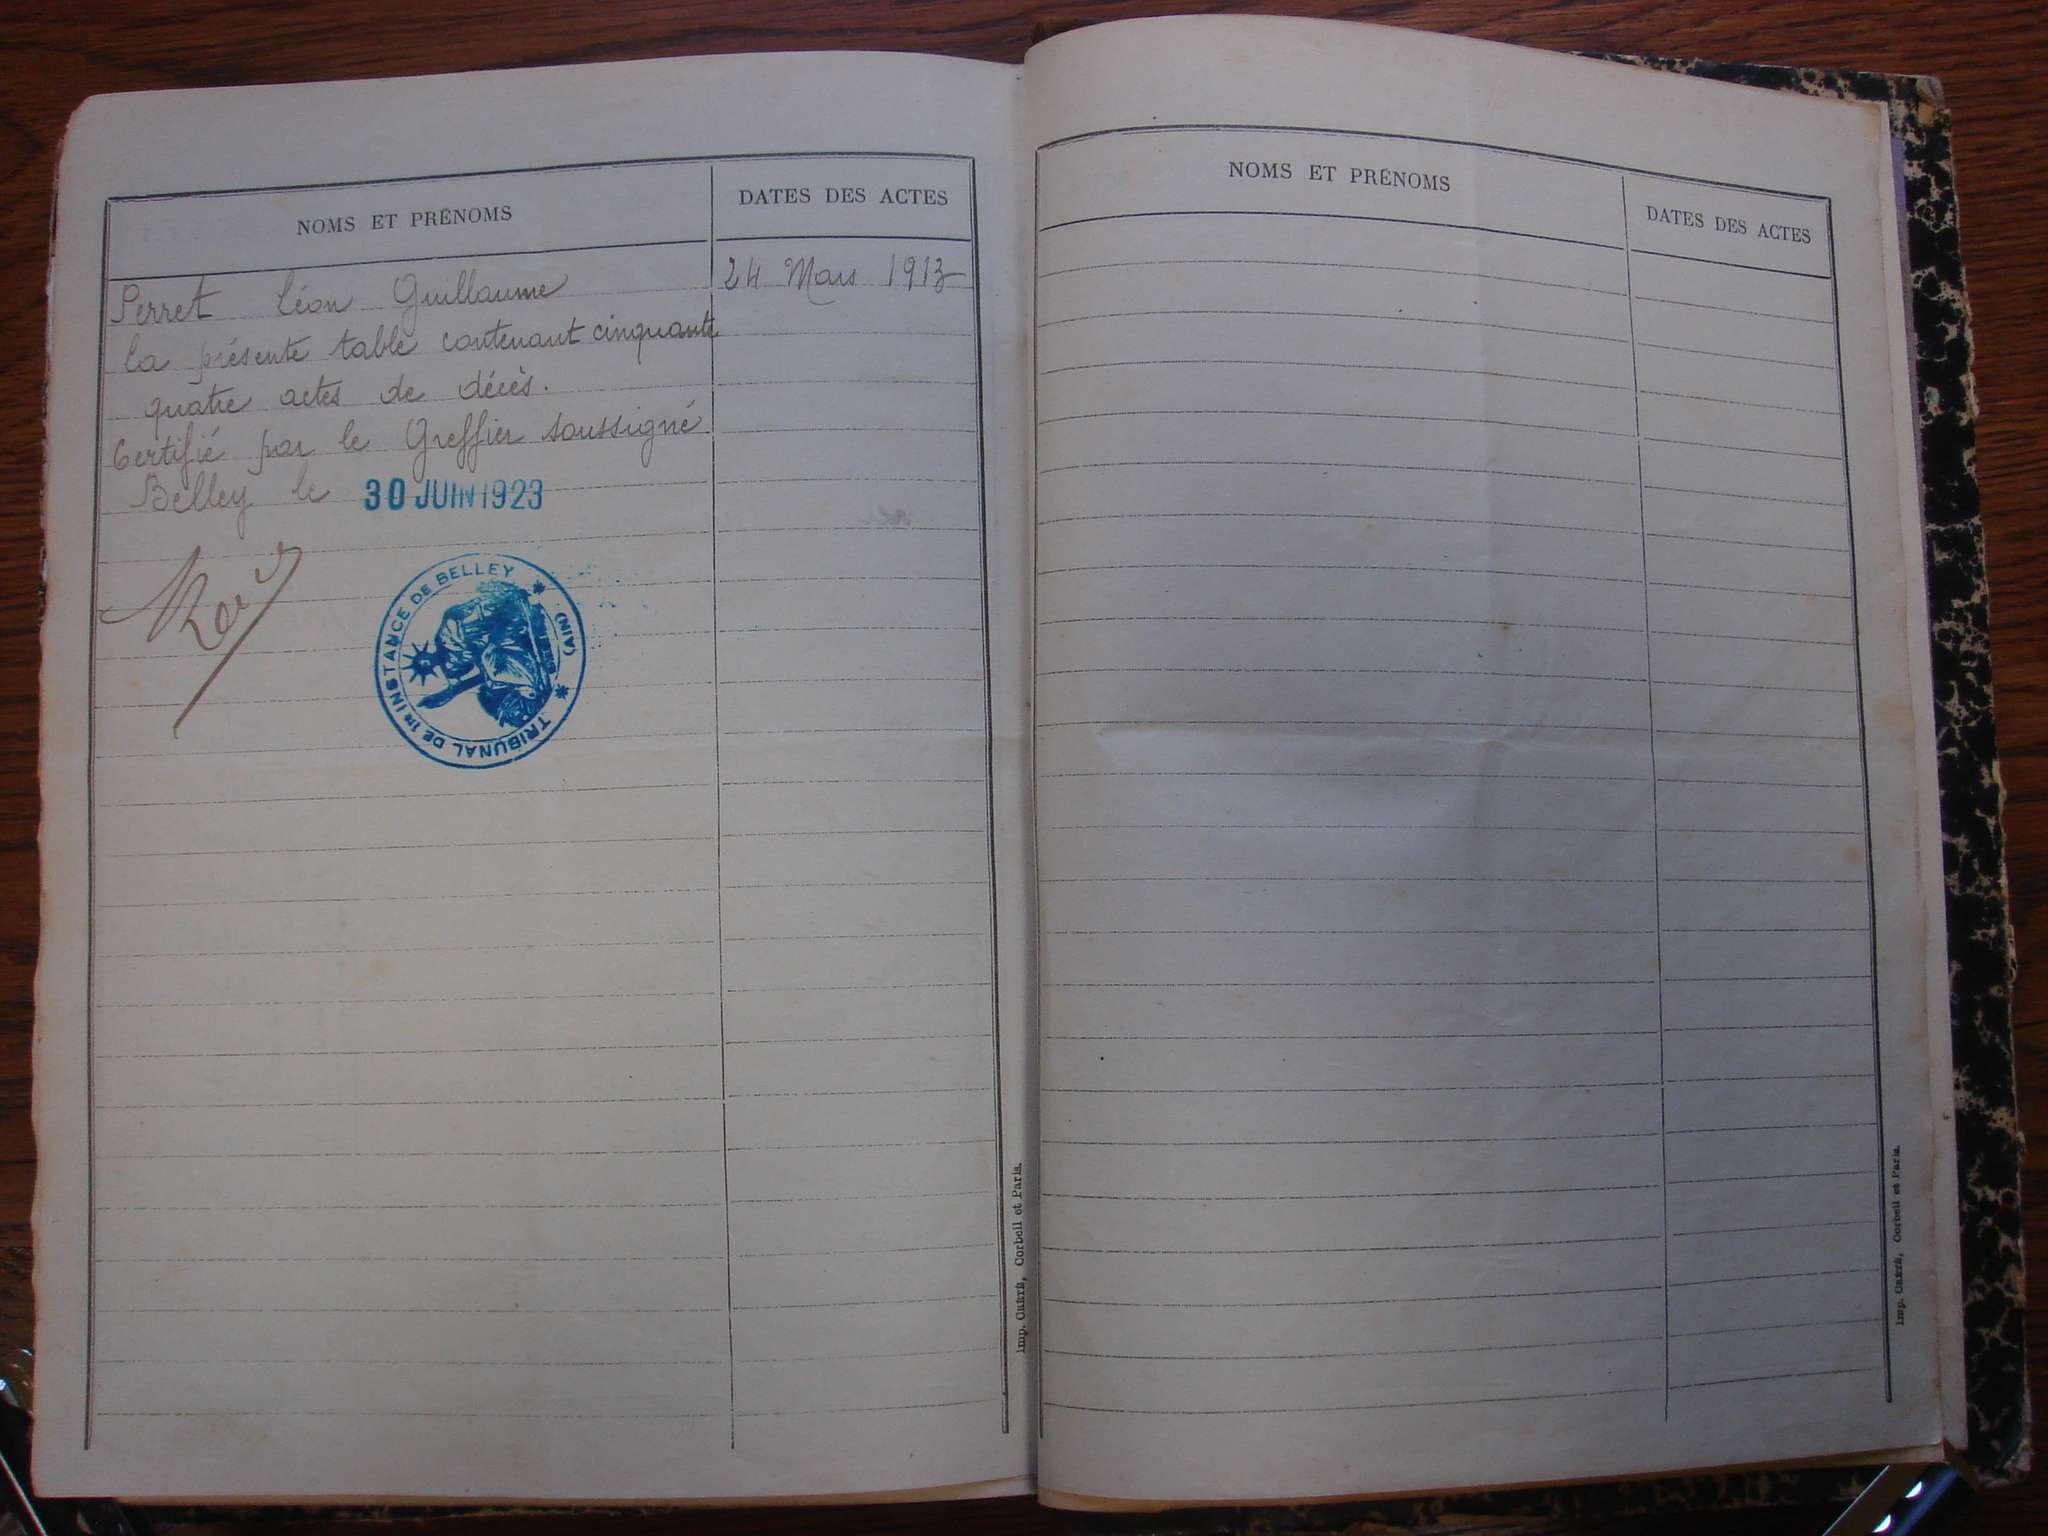 NOMS ET PRÉNOMS
DATES DES ACTES
Perret Léon Guillaume
24 Mars 1913
la présente table contenant cinquante
quatre actes de décès.
Certifié par le Greffier soussigné
Belley le 30 JUIN 1923
TRIBUNAL DE 1re INSTANCE DE BELLEY
(AIN)
Imp. CRÉTÉ, Corbeil et Paris.
NOMS ET PRÉNOMS
DATES DES ACTES
Imp. CRÉTÉ, Corbeil et Paris.